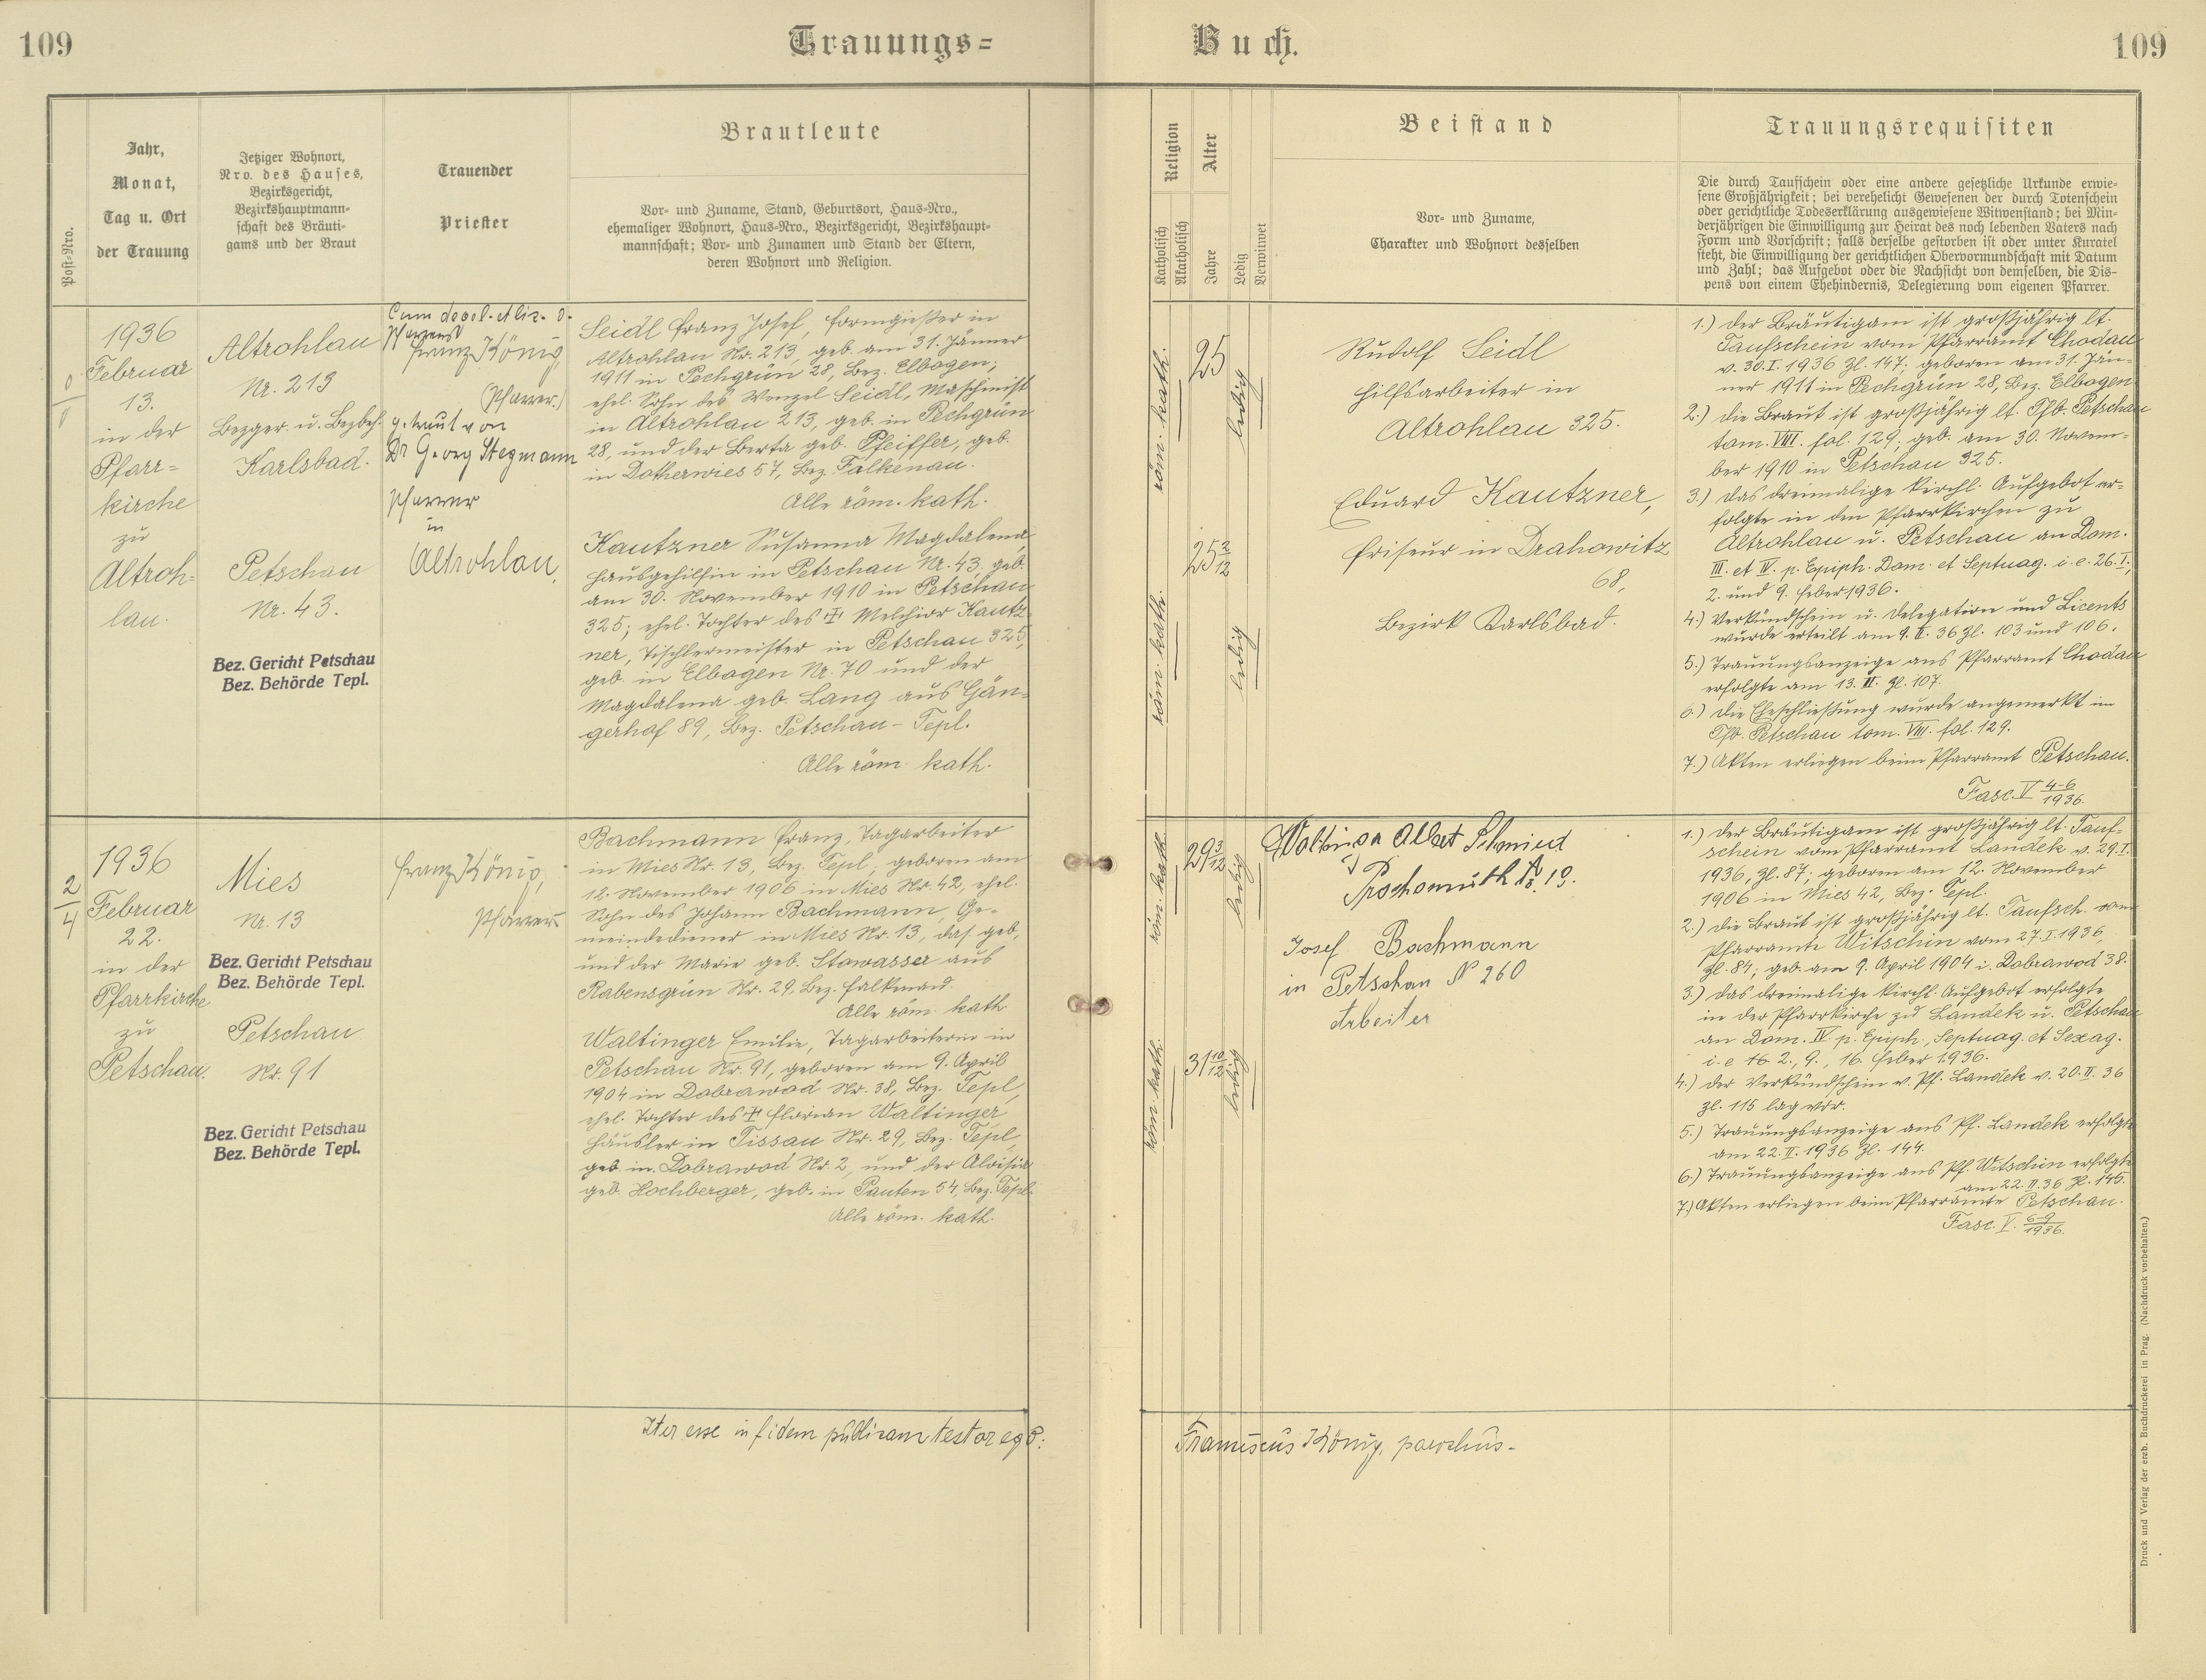 109
Trauungs=
Buch.
109
Post=Nro.
Jahr,
Monat,
Tag u. Ort
der Trauung
Jetziger Wohnort,
Nro. des Hauses,
Bezirksgericht,
Bezirkshauptmann=
schaft des Bräuti=
gams und der Braut
Trauender
Priester
Brautleute
Vor= und Zuname, Stand, Geburtsort, Haus=Nro.,
ehemaliger Wohnort, Haus=Nro., Bezirksgericht, Bezirkshaupt=
mannschaft; Vor= und Zunamen und Stand der Eltern,
deren Wohnort und Religion.
Religion
Katholisch
Akatholisch
Alter
Jahre
Ledig
Verwitwet
Beistand
Vor= und Zuname,
Charakter und Wohnort desselben
Trauungsrequisiten
Die durch Taufschein oder eine andere gesetzliche Urkunde erwie=
sene Großjährigkeit; bei verehelicht Gewesenen der durch Totenschein
oder gerichtliche Todeserklärung ausgewiesene Witwenstand; bei Min=
derjährigen die Einwilligung zur Heirat des noch lebenden Vaters nach
Form und Vorschrift; falls derselbe gestorben ist oder unter Kuratel
steht, die Einwilligung der gerichtlichen Obervormundschaft mit Datum
und Zahl; das Aufgebot oder die Nachsicht von demselben, die Dis=
pens von einem Ehehindernis, Delegierung vom eigenen Pfarrer.
1936
Februar
13.
in der
Pfarr=
kirche
zu
Altroh=
lau.
Altrohlau
Nr. 213
Bezger. u. Bezbeh.
Karlsbad.
Petschau
Nr. 43.
Bez. Gericht Petschau
Bez. Behörde Tepl.
Cum
Pfarrers
Franz König,
(Pfarrer.)
getraut von
Dr Georg Stegmann
Pfarrer
in
Altrohlau,
Seidl Franz Josef, Formgießer in
Altrohlau Nr. 213, geb. am 31. Jänner
1911 in Pechgrün 28, Bez. Elbogen;
ehel. Sohn des Wenzel Seidl, Maschinist
in Altrohlau 213, geb. in Pechgrün
28, und der Berta geb. Pfeiffer, geb.
in Dotherwies 57, Bez. Falkenau.
Alle röm. kath.
Kautzner Susanna Magdalena,
Hausgehilfin in Petschau Nr. 43. geb.
am 30. November 1910 in Petschau
325; ehel. Tochter des † Melchior Kautz=
ner, Tischlermeister in Petschau 325,
geb. in Elbogen Nr. 70 und der
Magdalena geb. Lang aus Gän=
gerhof 89, Bez. Petschau - Tepl.
Alle röm. kath.
röm. kath.
25
ledig
röm. kath.
25 2/12
ledig
Rudolf Seidl
Hilfsarbeiter in
Altrohlau 325.
Eduard Kautzner,
Friseur in Drahowitz
68,
Bezirk Karlsbad.
1.) Der Bräutigam ist großjährig lt.
Taufschein vom Pfarramt Chodau
v. 30.I.1936 Zl. 147; geboren am 31. Jän=
ner 1911 in Pechgrün 28, Bez. Elbogen
2.) die Braut ist großjährig lt. Tfb. Petschau
tom. VIII. fol. 129; geb. am 30. Novem=
ber 1910 in Petschau 325.
3.) Das dreimalige kirchl. Aufgebot er=
folgte in den Pfarrkirchen zu
Altrohlau u. Petschau an Dom.
III. et IV. p. Epiph. Dom. et Septuag. i. e. 26.I.,
2. und 9. Feber 1936.
4.) Verkündschein u. Delegation und Licents
wurde erteilt am 9. II. 36 Zl. 103 und 106.
5.) Trauungsanzeige ans Pfarramt Chodau
erfolgte am 13. II. Zl. 107.
6.) Die Eheschließung wurde angemerkt im
Tfb. Petschau tom. VIII. fol. 129.
7.) Akten erliegen beim Pfarramt Petschau.
Fasc. V 4-6/1936.
2/4
1936
Februar
22.
in der
Pfarrkirche
zu
Petschau.
Mies
Nr. 13
Bez. Gericht Petschau
Bez. Behörde Tepl.
Petschau
Nr. 91
Bez. Gericht Petschau
Bez. Behörde Tepl.
Franz König,
Pfarrer
Bachmann Franz, Tagarbeiter
in Mies Nr. 13, Bez. Tepl, geboren am
12. November 1906 in Mies Nr. 42, ehel.
Sohn des Johann Bachmann, Ge=
meindediener in Mies Nr. 13, das. geb.
und der Marie geb. Stowasser aus
Rabensgrün Nr. 29, Bez. Falkenau.
Alle röm. kath
Waltinger Emilie, Tagarbeiterin in
Petschau Nr. 91, geboren am 9. April
1904 in Dobrawod Nr. 38, Bez. Tepl,
ehel. Tochter des † Florian Waltinger
Häusler in Tissau Nr. 29, Bez. Tepl,
geb. in Dobrawod Nr. 2, und der Aloisia
geb. Hochberger, geb. in Pauten 54, Bez. Tepl.
Alle röm. kath.
röm. kath.
29 3/12
ledig
röm. kath.
31 10/12
ledig
Albert Schmied
Proschomuth No. 19.
Josef Bachmann
in Petschau N 260
Arbeiter
1.) Der Bräutigam ist großjährig lt. Tauf=
schein vom Pfarramt Landek v. 29.I.
1936, Zl. 87; geboren am 12. November
1906 in Mies 42, Bez. Tepl.
2.) die Braut ist großjährig lt. Taufsch. vom
Pfarramte Witschin vom 27.I.1936,
Zl. 84; geb. am 9. April 1904 i. Dobrawod 38.
3.) das dreimalige kirchl. Aufgebot erfolgte
in der Pfarrkirche zu Landek u. Petschau
an Dom. IV. p. Epiph., Septuag. et Sexag.
i. e 2., 9., 16. Feber 1936.
4.) Der Verkündschein v. Pf. Landek v. 20. II. 36
Zl. 115 lag vor.
5.) Trauungsanzeige ans Pf. Landek erfolgte
am 22. II. 1936 Zl. 144.
6.) Trauungsanzeige ans Pf. Witschin erfolgte
am 22. II. 36 Zl. 145.
7.) Akten erliegen beim Pfarramte Petschau.
Fasc. V. 6-9/1936.
Iter esse in fidem publicam testor ego:
Franciscus König, parochus-
Druck und Verlag der erzb. Buchdruckerei in Prag. (Nachdruck vorbehalten.)